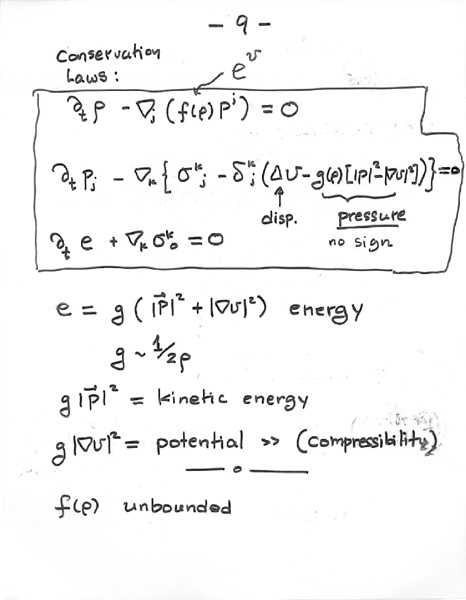 - 9 -
Conservation
Laws :
e^v
∂_t ρ - ∇_j (f(ρ) p^j) = 0
∂_t p_j - ∇_k { σ^k_j - δ^k_j (Δv - g(ρ) [|p|² - |∇v|²]) } = 0
disp. pressure
no sign
∂_t e + ∇_k σ^k_0 = 0
e = g ( |p⃗|² + |∇v|² ) energy
g ~ 1/2ρ
g |p⃗|² = kinetic energy
g |∇v|² = potential >> (compressibility)
— o —
f(ρ) unbounded